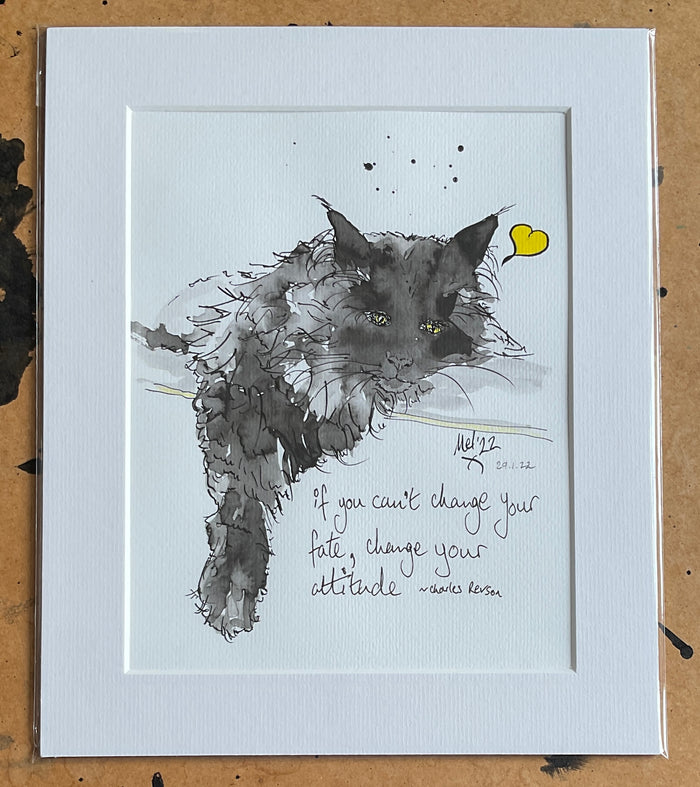 Mel '22
X
29.1.22
if you can't change your
fate, change your
attitude ~Charles Revson